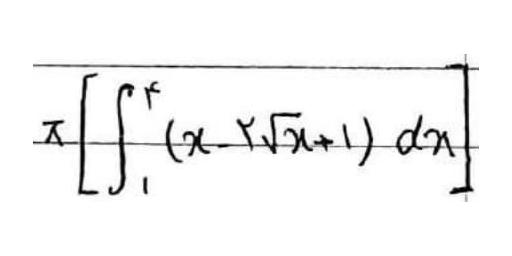 π[∫₁^۴ (x-۲√x+۱) dx]